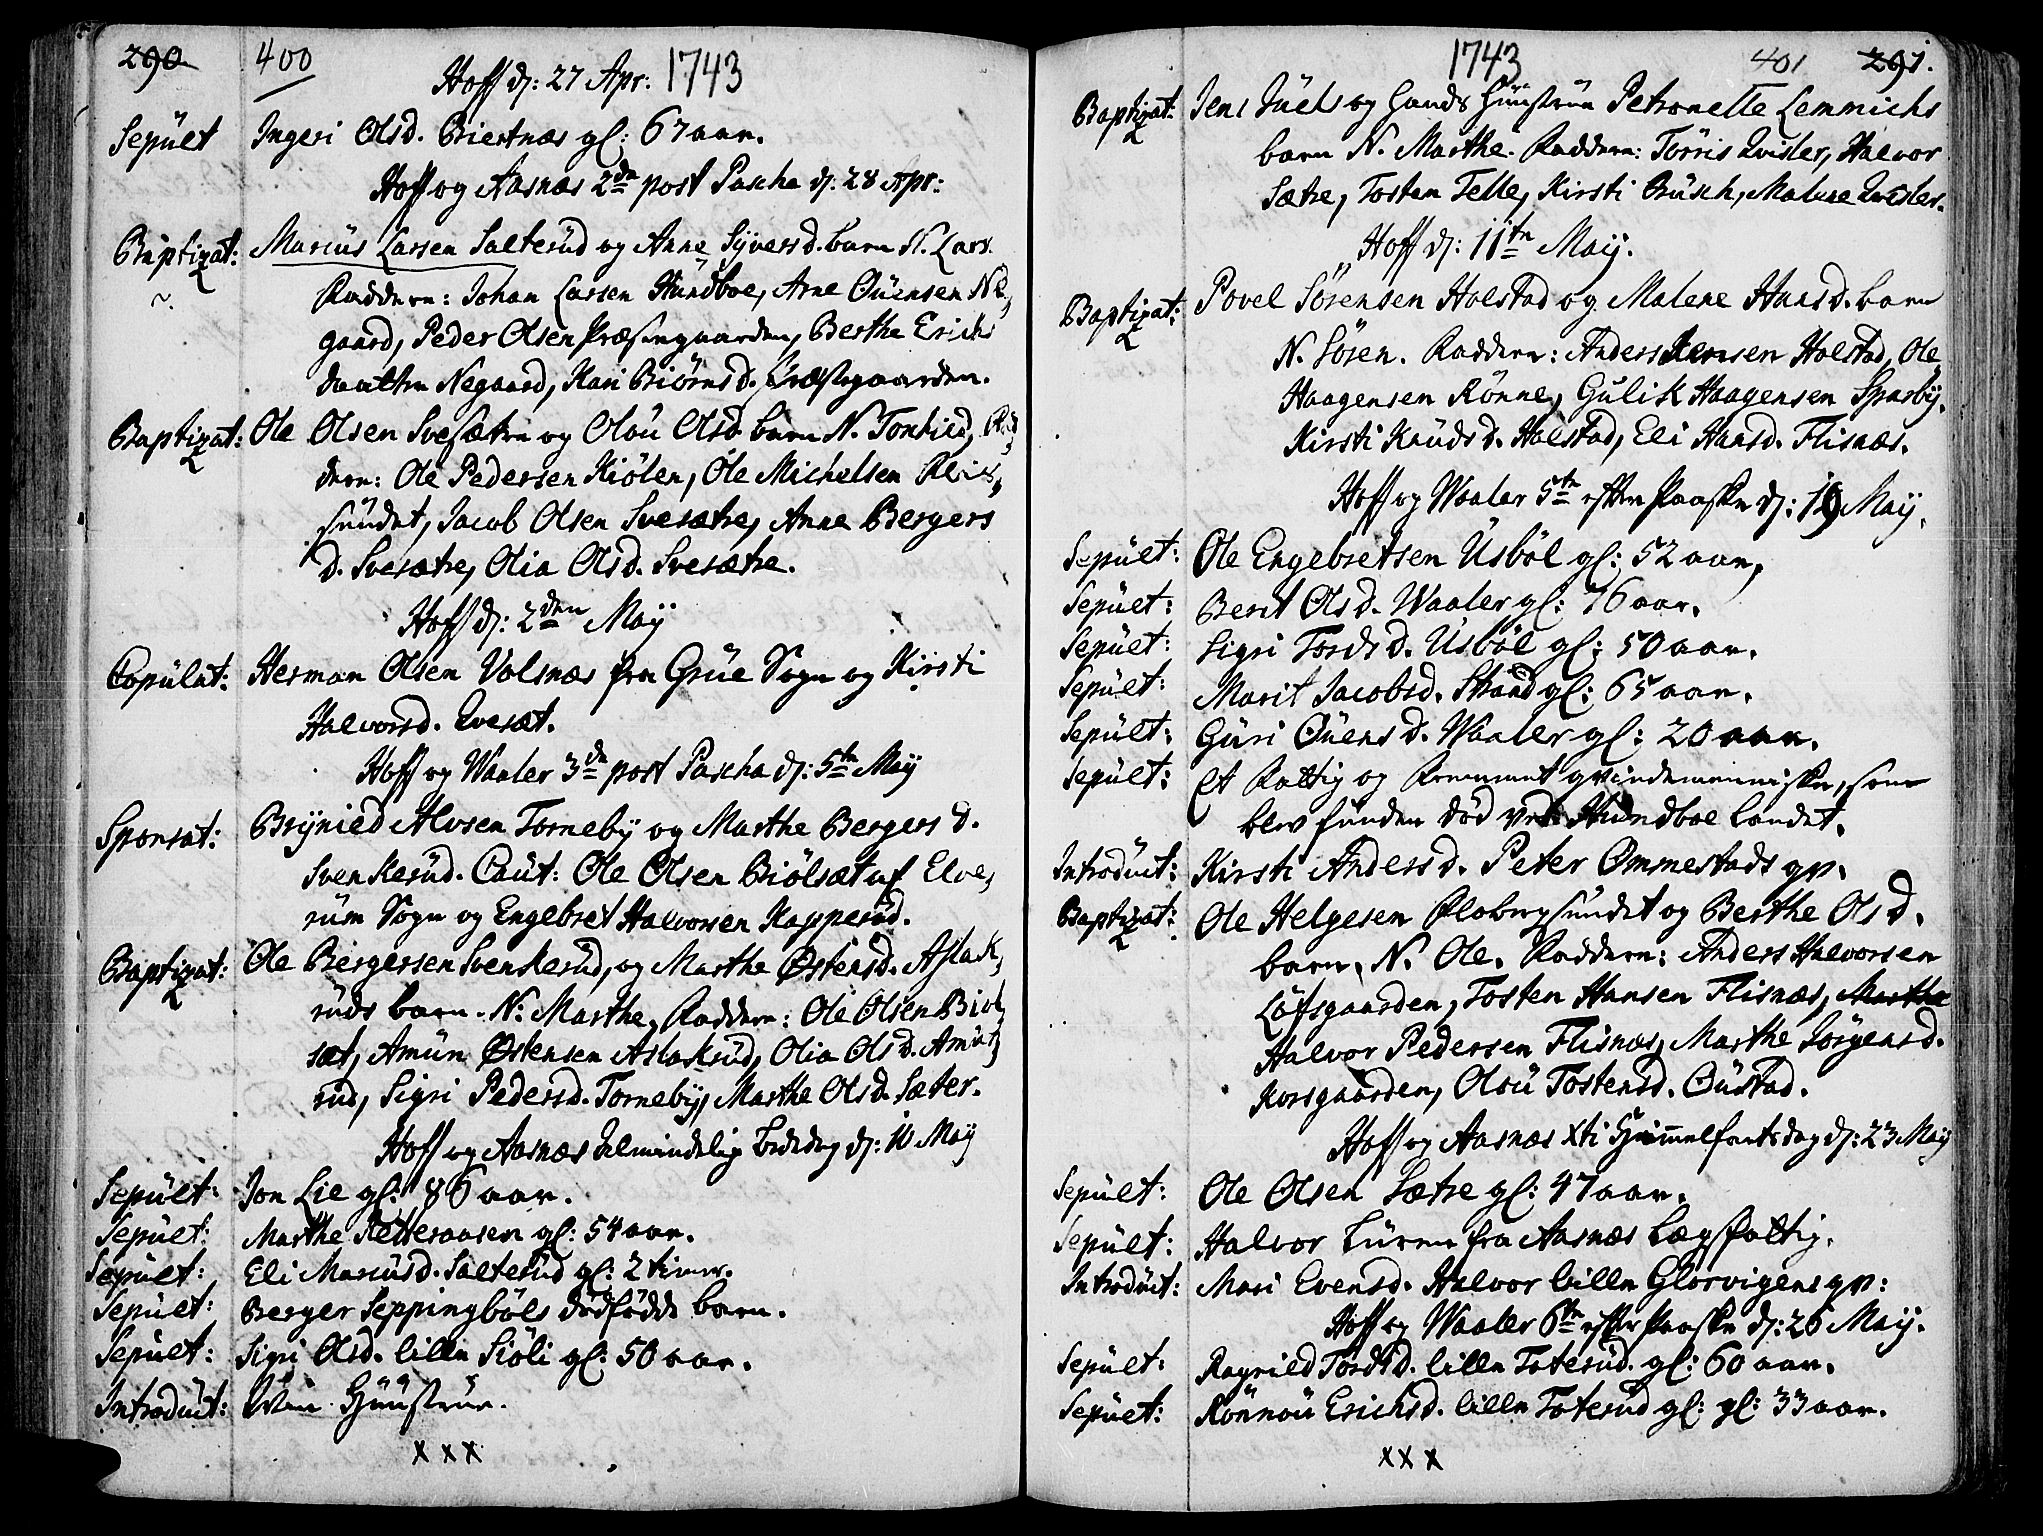 290 400
Hoff d: 27 Apr: 1743
Sepult Ingeri Olsd. Biertnæs gl: 67 aar.
Hoff og Aasnæs 2dn post Pascha d: 28 Apr:
Baptizat: Marius Larsen Salterud og Anne Syversd. barn N. Lars.
Faddere: Johan Larsen Hundboe, Arne Ouensen Ne,
gaard, Peder Olsen Præstegaarden, Berthe Erichs
daatter Negaard, Kari Biörnsd. Præstegaarden.
Baptizat: Ole Olsen Svesætre og Olou Olsd. barn N. Fad,
dere: Ole Pedersen Kiölen, Ole Michelsen
sundet, Jacob Olsen Svesætre, Anne Bergers
d. Svesætre, Olia Olsd. Svesætre.
Hoff d: 2den May
Copulat: Herman Olsen Volsnæs fra Grue Sogn og Kirsti
Halvorsd. Qvesæt.
Hoff og Waaler 3dn post Pascha d: 5tn May
Sponsat: Brynild Alvsen Torneby og Marthe Bergersd.
Svenkerud. Caut: Ole Olsen Biölsæt af Elve,
rum Sogn og Engebret Halvorsen Kapperud.
Baptizat: Ole Bergersen Svenkerud, og Marthe Østensd. Aslak,
ruds barn. N: Marthe, Faddere: Ole Olsen Biöl,
sæt, Amun Østensen Aslakrud, Olia Olsd. Amut,
rud, Sigri Pedersd. Torneby, Marthe Olsd. Sæter.
Hoff og Aasnæs Almindelig Bededag d: 10 May
Sepult: Jon Lie gl: 86 aar.
Sepult: Marthe Petteraasen gl: 54 aar.
Sepult: Eli Mariusd. Salterud gl: 2 timer.
Sepult: Berger Seppingböls dödfödde barn.
Sepult: Sigri Olsd. lille Siöli gl: 50 aar.
Introduct: Min Hüüstrüe.
x x x
1743 401 291.
Baptizat: Jens Juels og Hands Hüüstrüe Petronelle Lemmichs
barn N. Marthe. Faddere: Törris Qvisler, Halvor
Sætre, Tosten Telle, Kirsti Busch, Malene Qvisler.
Hoff d: 11tn Maij.
Baptizat: Povel Sörensen Holstad og Malene Hansd. barn
N. Sören. Faddere: Anders Hansen Holstad, Ole
Haagensen Rönne, Gulik Haagensen Sparby,
Kirsti Knudsd. Holstad, Eli Hansd. Flisnæs.
Hoff og Waaler 5tn efter Paaske d: 19 Maij.
Sepult: Ole Engebretsen Usböl gl: 52 aar,
Sepult: Berit Olsd. Waaler gl: 76 aar.
Sepult: Sigri Tordsd. Usböl gl: 50 aar.
Sepult: Marit Jacobsd. Strand gl: 65 aar.
Sepult: Guri Ouensd. Waaler gl: 20 aar.
Sepult: Et Fattig og Fremmet qvindemenniske, som
blev funden död ved Hundboe landet.
Introduct: Kirsti Andersd. Peter Ommestads qv.
Baptizat: Ole Helgesen Flobergsundet og Berthe Olsd.
barn, N. Ole. Faddere: Anders Halvorsen
Löfsgaarden, Tosten Hansen Flisnæs, Marthe
Halvor Pedersen Flisnæs, Marthe Jörgensd.
Korsgaarden, Olou Tostensd. Bustad.
Hoff og Aasnæs Xti Himmelfartsdag d: 23 Maij
Sepult: Ole Olsen Sætre gl: 47 aar.
Sepult: Halvor Luren fra Aasnæs Lægsfattig.
Introduct: Mari Evensd. Halvor lille Glorvigens qv:
Hoff og Waaler 6tn efter Paaske d: 26 Maij.
Sepult: Ragnild Tordsd. lille Toterud gl: 60 aar.
Sepult: Rönnou Erichsd. lille Toterud gl: gl: 33 aar.
x x x